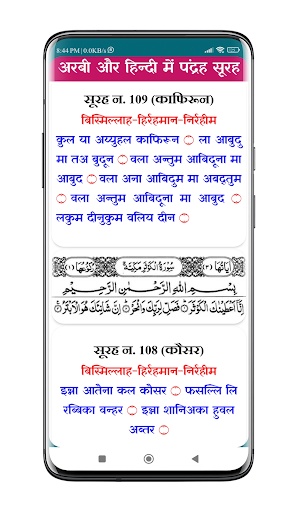 8:44 PM | 0.0KB/s
अरबी और हिन्दी में पंद्रह सूरह
सूरह न. 109 (काफिरून)
बिस्मिल्लाह-हिर्रहमान-निर्रहीम
कुल या अय्युहल काफिरून ۝ ला आबुदु
मा तअ बुदून ۝ वला अन्तुम आबिदूना मा
आबुद ۝ वला अना आबिदुम मा अबद्तुम
۝ वला अन्तुम आबिदूना मा आबुद ۝
लकुम दीनुकुम वलिय दीन ۝
اٰیاتها (٣) سُوْرَةُ الْكَوْثَرِ مَكِّيَّةٌ رُكُوْعُهَا (١)
بِسْمِ اللّٰهِ الرَّحْمٰنِ الرَّحِيْمِ
اِنَّاۤ اَعْطَيْنٰكَ الْكَوْثَرَ ۝ فَصَلِّ لِرَبِّكَ وَانْحَرْ ۝ اِنَّ شَانِئَكَ هُوَ الْاَبْتَرُ ۝
सूरह न. 108 (कौसर)
बिस्मिल्लाह-हिर्रहमान-निर्रहीम
इन्ना आतेना कल कोसर ۝ फसल्लि लि
रब्बिका वन्हर ۝ इन्ना शानिअका हुवल
अब्तर ۝